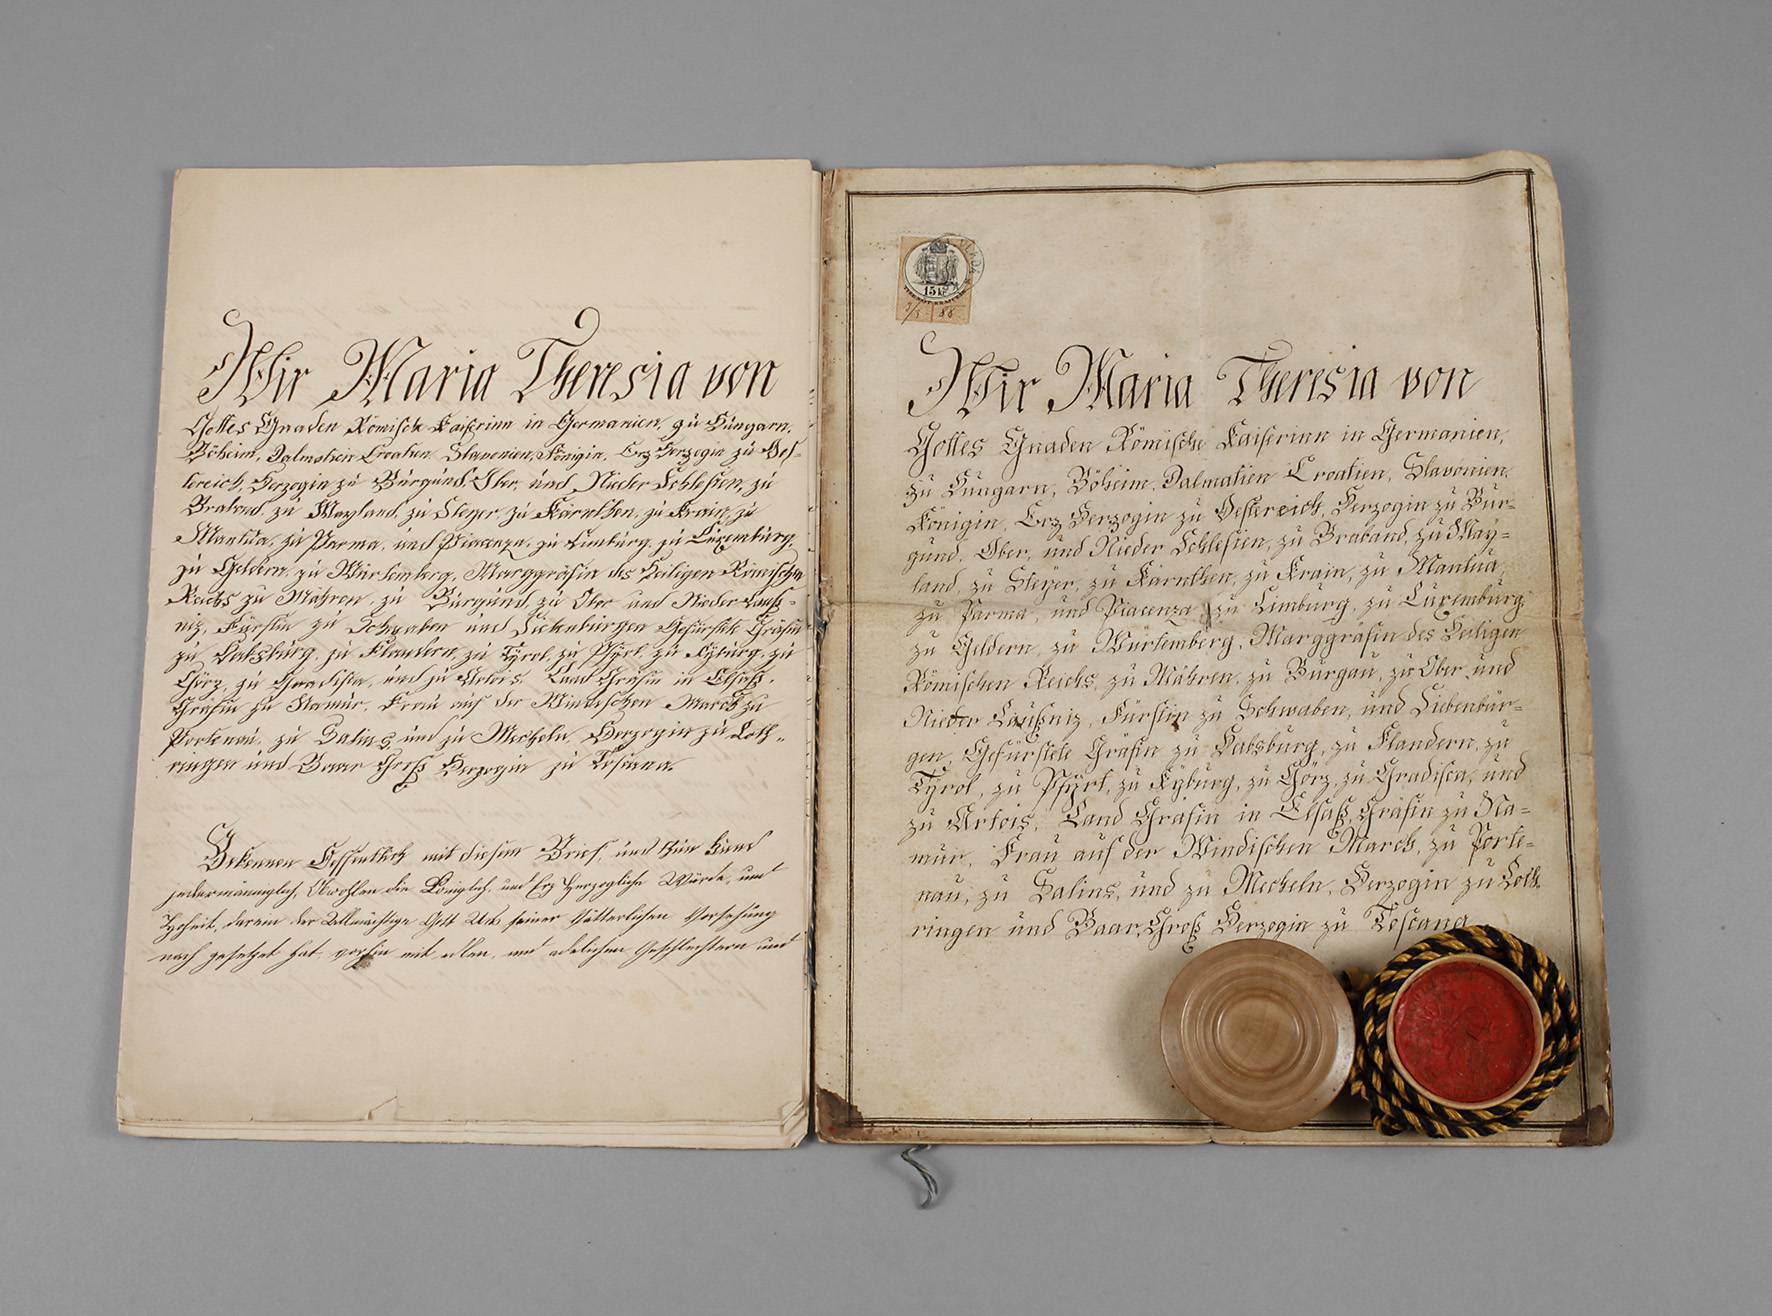 Wir Maria Theresia von
Gottes Gnaden Römische Kaiserinn in Germanien, zu Hungarn,
Böheim, Dalmatien Croatien, Slavonien, Königin, Erz Herzogin zu Oes-
terreich, Herzogin zu Burgund, Ober, und Nieder Schlesien, zu
Braband, zu Mayland, zu Steyer, zu Kärnthen, zu Krain, zu
Mantua, zu Parma, und Piacenza, zu Limburg, zu Luxemburg,
zu Geldern, zu Würtemberg, Marggräfin des Heiligen Römischen
Reichs zu Mähren, zu Burgund, zu Ober und Nieder Lauß-
niz, Fürstin zu Schwaben und Siebenbürgen Gefürstete Gräfin
zu Habsburg, zu Flandern, zu Tyrol, zu Pfyrt, zu Kyburg, zu
Görz, zu Gradisca, und zu Artois, Land Gräfin in Elsaß,
Gräfin zu Namur, Frau auf der Windischen March zu
Portenau, zu Salins und zu Mecheln, Herzogin zu Loth-
ringen und Baar Groß Herzogin zu Toscana.
Bekennen Oeffentlich mit diesem Brief, und thun kund
jedermänniglich, Obwohlen die Königlich, und Erz Herzogliche Würde, und
Hoheit, darein der Allmächtige Gott Uns seiner Vätterlichen Vorsehung
nach gesetzet hat, vorhin mit allen, und adelichen Geschlechtern und
15 Kr
7/3 88
Wir Maria Theresia von
Gottes Gnaden Römische Kaiserinn in Germanien,
zu Hungarn, Böheim, Dalmatien Croatien, Slavonien,
Königin, Erz Herzogin zu Oesterreich, Herzogin zu Bur-
gund, Ober, und Nieder Schlesien, zu Braband, zu May-
land, zu Steyer, zu Kärnthen, zu Krain, zu Mantua,
zu Parma, und Piacenza, zu Limburg, zu Luxemburg,
zu Geldern, zu Würtemberg, Marggräfin des Heiligen
Römischen Reichs, zu Mähren, zu Burgau, zu Ober und
Nieder Laußniz, Fürstin zu Schwaben, und Siebenbür-
gen, Gefürstete Gräfin zu Habsburg, zu Flandern, zu
Tyrol, zu Pfyrt, zu Kyburg, zu Görz, zu Gradisca, und
zu Artois, Land Gräfin in Elsaß, Gräfin zu Na-
mur, Frau auf der Windischen March, zu Porte-
nau, zu Salins, und zu Mecheln, Herzogin zu Loth-
ringen und Baar, Groß Herzogin zu Toscana